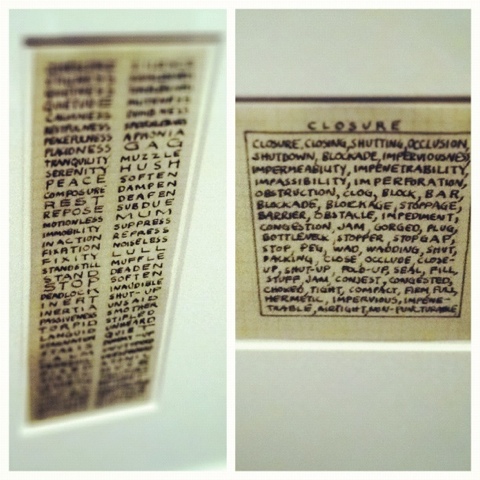 QUIETUDE
CALMNESS
RESTFULNESS
PEACEFULNESS
PLACIDNESS
TRANQUILITY
SERENITY
PEACE
COMPOSURE
REST
REPOSE
MOTIONLESS
IMMOBILITY
INACTION
FIXATION
FIXITY
STANDSTILL
STAND
STOP
DEADLOCK
INERT
INERTIA
PASSIVENESS
TORPID
LANGUID
SILENCE
APHONIA
GAG
MUZZLE
HUSH
SOFTEN
DAMPEN
DEAFEN
SUBDUE
MUM
SUPPRESS
REPRESS
NOISELESS
LULL
MUFFLE
DEADEN
SOFTEN
INAUDIBLE
SHUT-UP
UNSAID
SMOTHER
STIFLED
UNHEARD
QUIET
CLOSURE
CLOSURE, CLOSING, SHUTTING, OCCLUSION,
SHUTDOWN, BLOCKADE, IMPERVIOUSNESS
IMPERMEABILITY, IMPENETRABILITY,
IMPASSIBILITY, IMPERFORATION,
OBSTRUCTION, CLOG, BLOCK, BAR,
BLOCKADE, BLOCKAGE, STOPPAGE,
BARRIER, OBSTACLE, IMPEDIMENT,
CONGESTION, JAM, GORGED, PLUG,
BOTTLENECK, STOPPER, STOPGAP,
STOP, PEG, WAD, WADDING, SHUT,
PACKING, CLOSE, OCCLUDE, CLOSE-
UP, SHUT-UP, FOLD-UP, SEAL, FILL,
STUFF, JAM, CONGEST, CONGESTED,
CHOKED, TIGHT, COMPACT, FIRM, FULL,
HERMETIC, IMPERVIOUS, IMPENE-
TRABLE, AIRTIGHT, NON-PUNCTURABLE